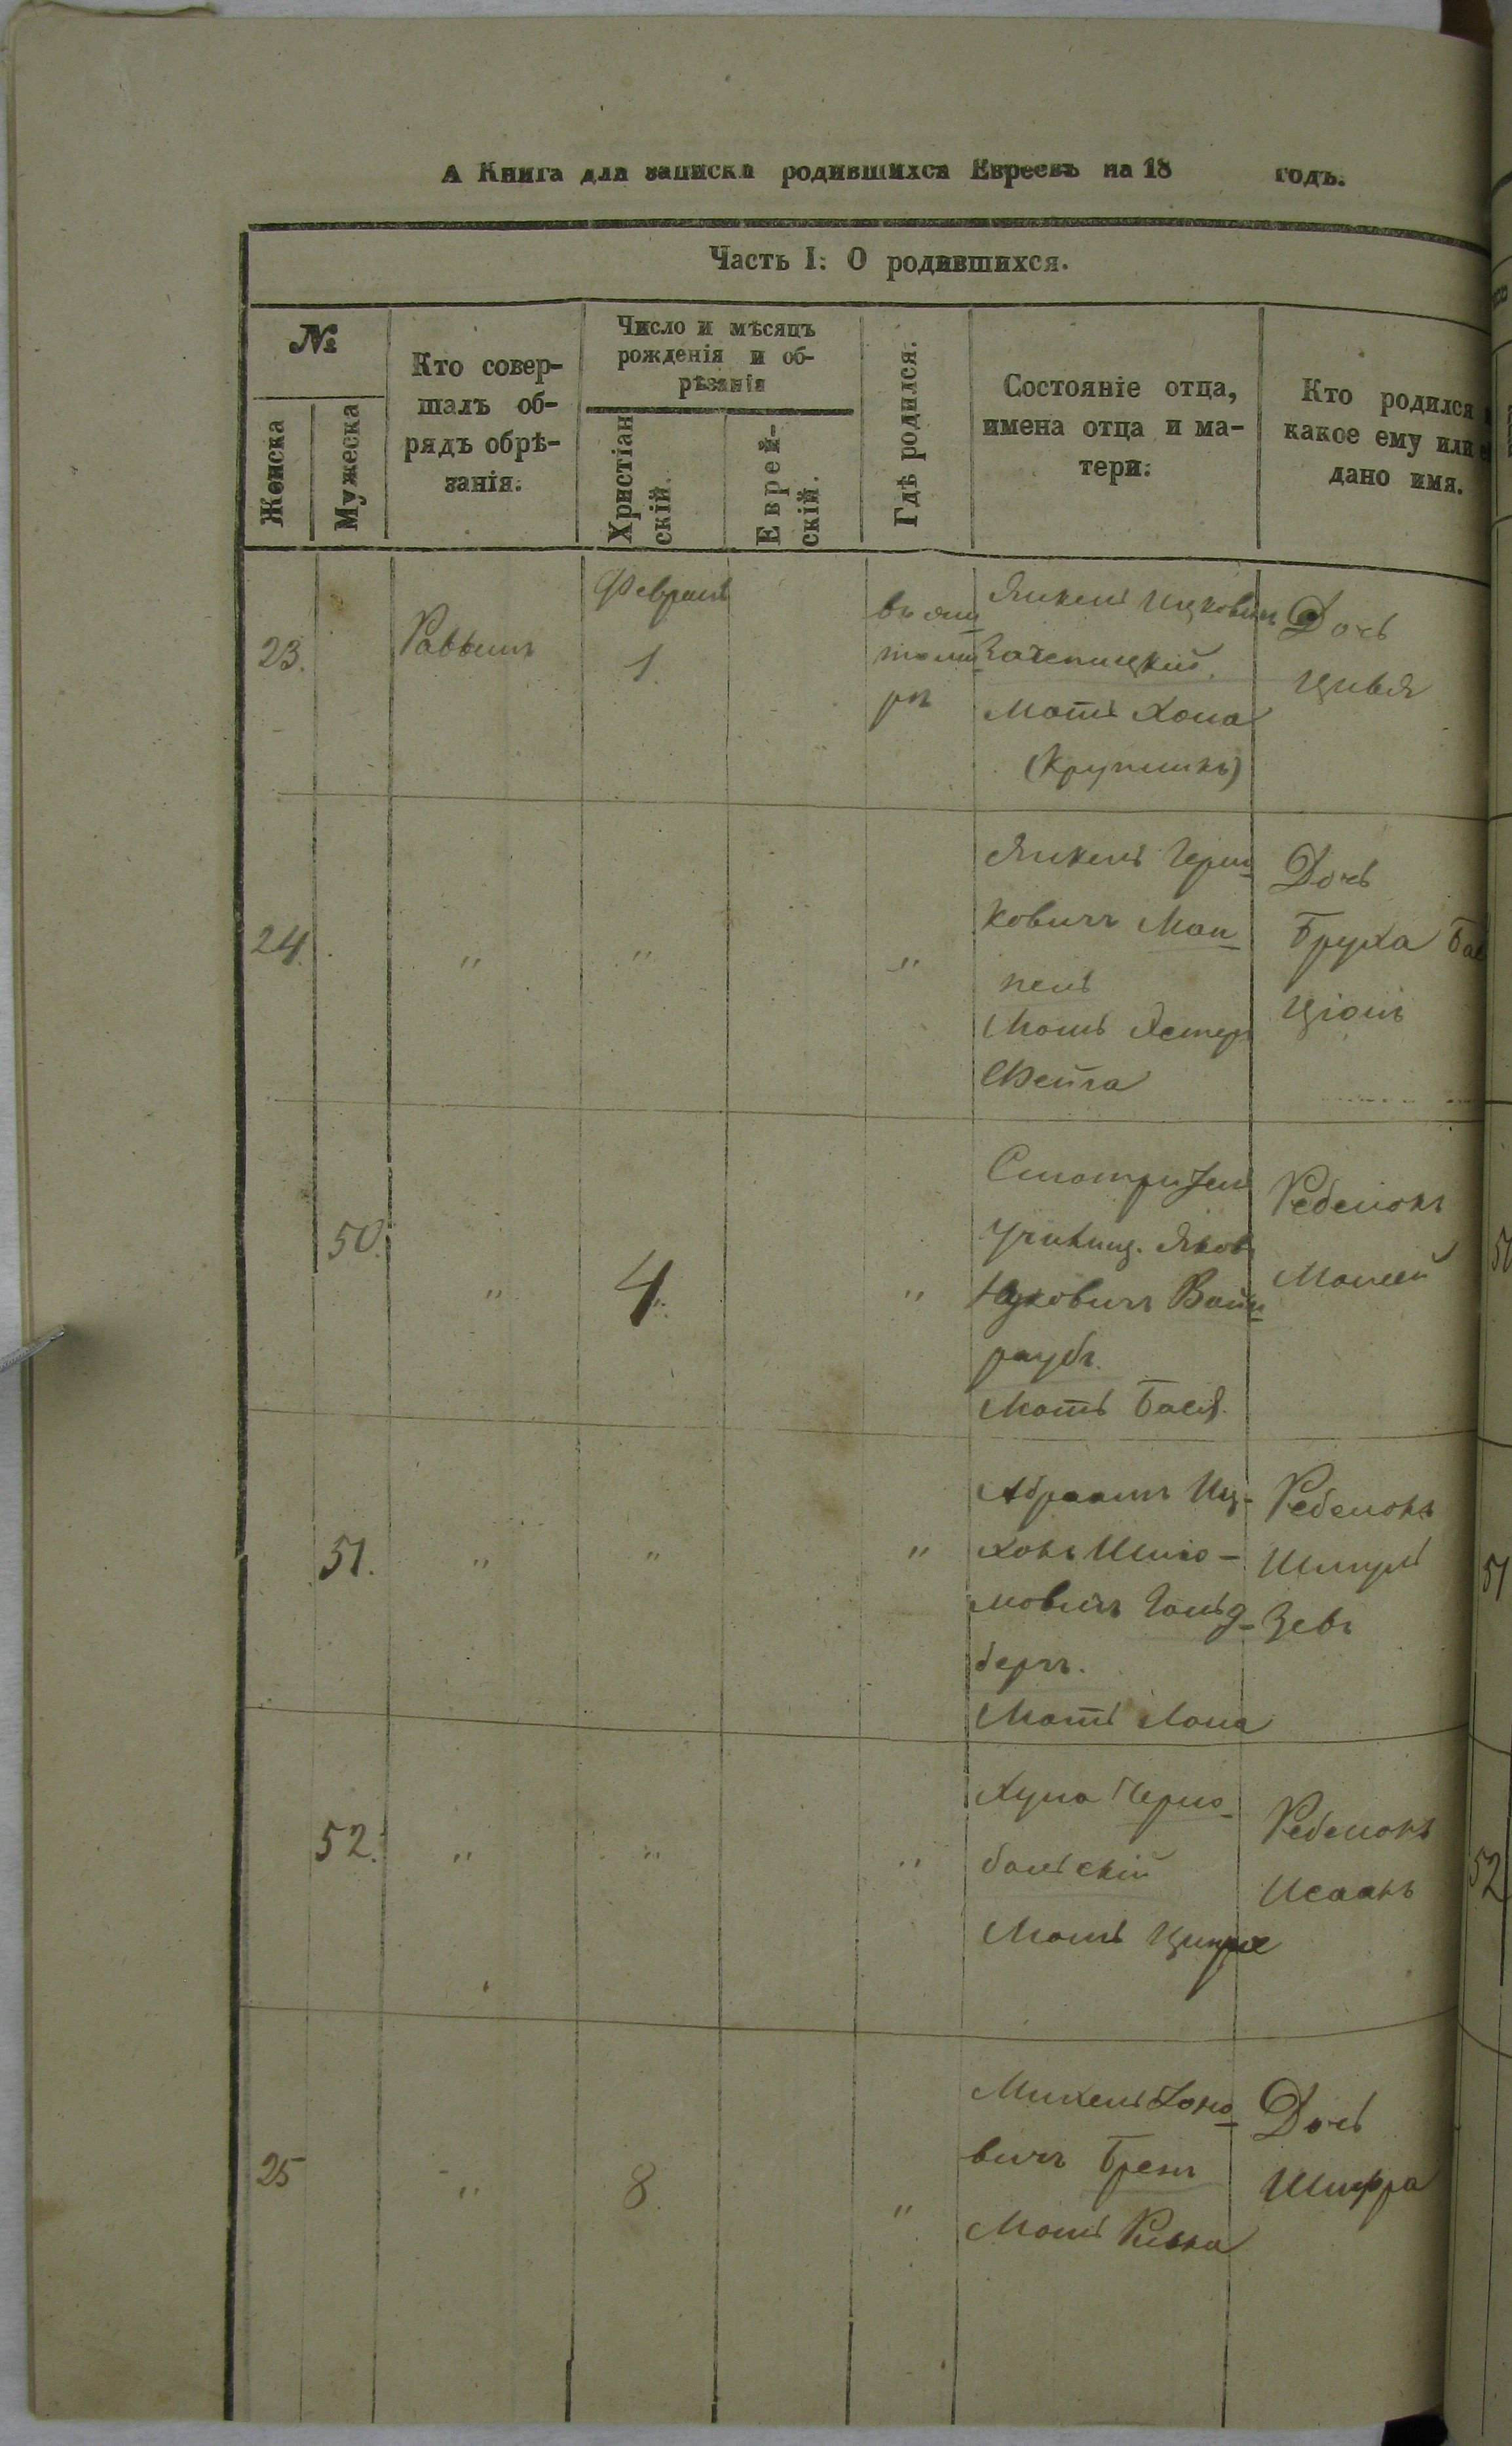 А Книга для записки родившихся Евреевъ на 18 годъ.
Часть I: О родившихся.
№
Женска
Мужеска
Кто совер-
шалъ об-
рядъ обрѣ-
занія.
Число и мѣсяцъ
рожденія и об-
рѣзанія
Христіан
скій.
Еврей-
скій.
Гдѣ родился.
Состояніе отца,
имена отца и ма-
тери.
Кто родился
какое ему или
дано имя.
23.
Раввинъ
Февраль
1.
въ жи
томи
рѣ
Янкель Ицковичъ
Мать Хана
(Крупникъ)
Дочь
Цивья
24.
"
"
"
Янкель Герш
ковичъ Ман
пель
Мать Эстеръ
Фейга
Дочь
Бруха Бас
Ціонъ
50.
"
4.
"
Смотритель
Училищ. Яковъ
Ицковичъ Вайн
раубъ.
Мать Бася.
Ребенокъ
Моисей
50
51.
"
"
"
Абрамъ Иц-
хокъ Шлио-
мовичъ Гольд-
бергъ.
Мать Хана
Ребенокъ
Шмуль
Зевъ
51
52.
"
"
"
Хуна Черно
быльскій
Мать Ципре
Ребенокъ
Исаакъ
52
25
"
8.
"
Михель Хано
вичъ Бренъ
Мать Ривка
Дочь
Шифра